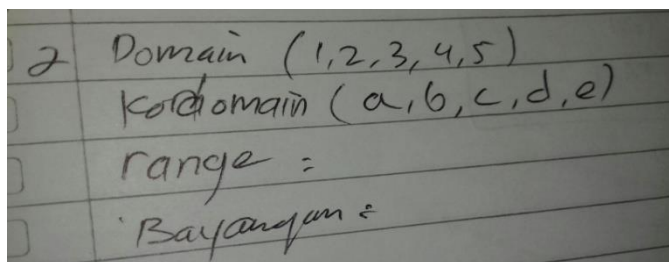 2 Domain (1,2,3,4,5)
Kordomain (a,b,c,d,e)
range =
Bayangan =